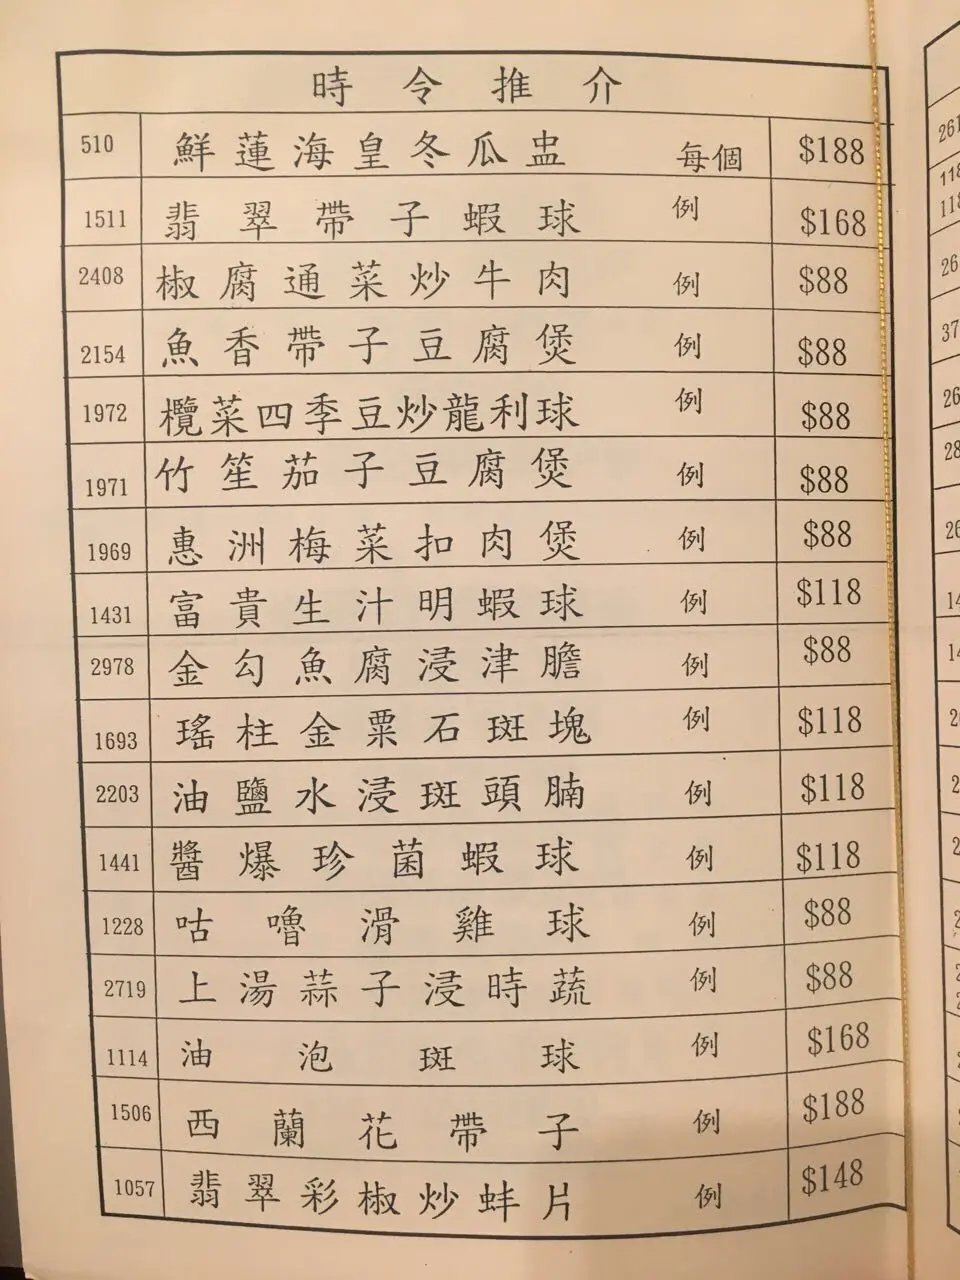 時令推介
510 鮮蓮海皇冬瓜盅 每個 $188
1511 翡翠帶子蝦球 例 $168
2408 椒腐通菜炒牛肉 例 $88
2154 魚香帶子豆腐煲 例 $88
1972 欖菜四季豆炒龍利球 例 $88
1971 竹笙茄子豆腐煲 例 $88
1969 惠洲梅菜扣肉煲 例 $88
1431 富貴生汁明蝦球 例 $118
2978 金勾魚腐浸津膽 例 $88
1693 瑤柱金粟石斑塊 例 $118
2203 油鹽水浸斑頭腩 例 $118
1441 醬爆珍菌蝦球 例 $118
1228 咕嚕滑雞球 例 $88
2719 上湯蒜子浸時蔬 例 $88
1114 油泡斑球 例 $168
1506 西蘭花帶子 例 $188
1057 翡翠彩椒炒蚌片 例 $148